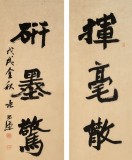 揮毫散
研墨驚
戊戌金秋